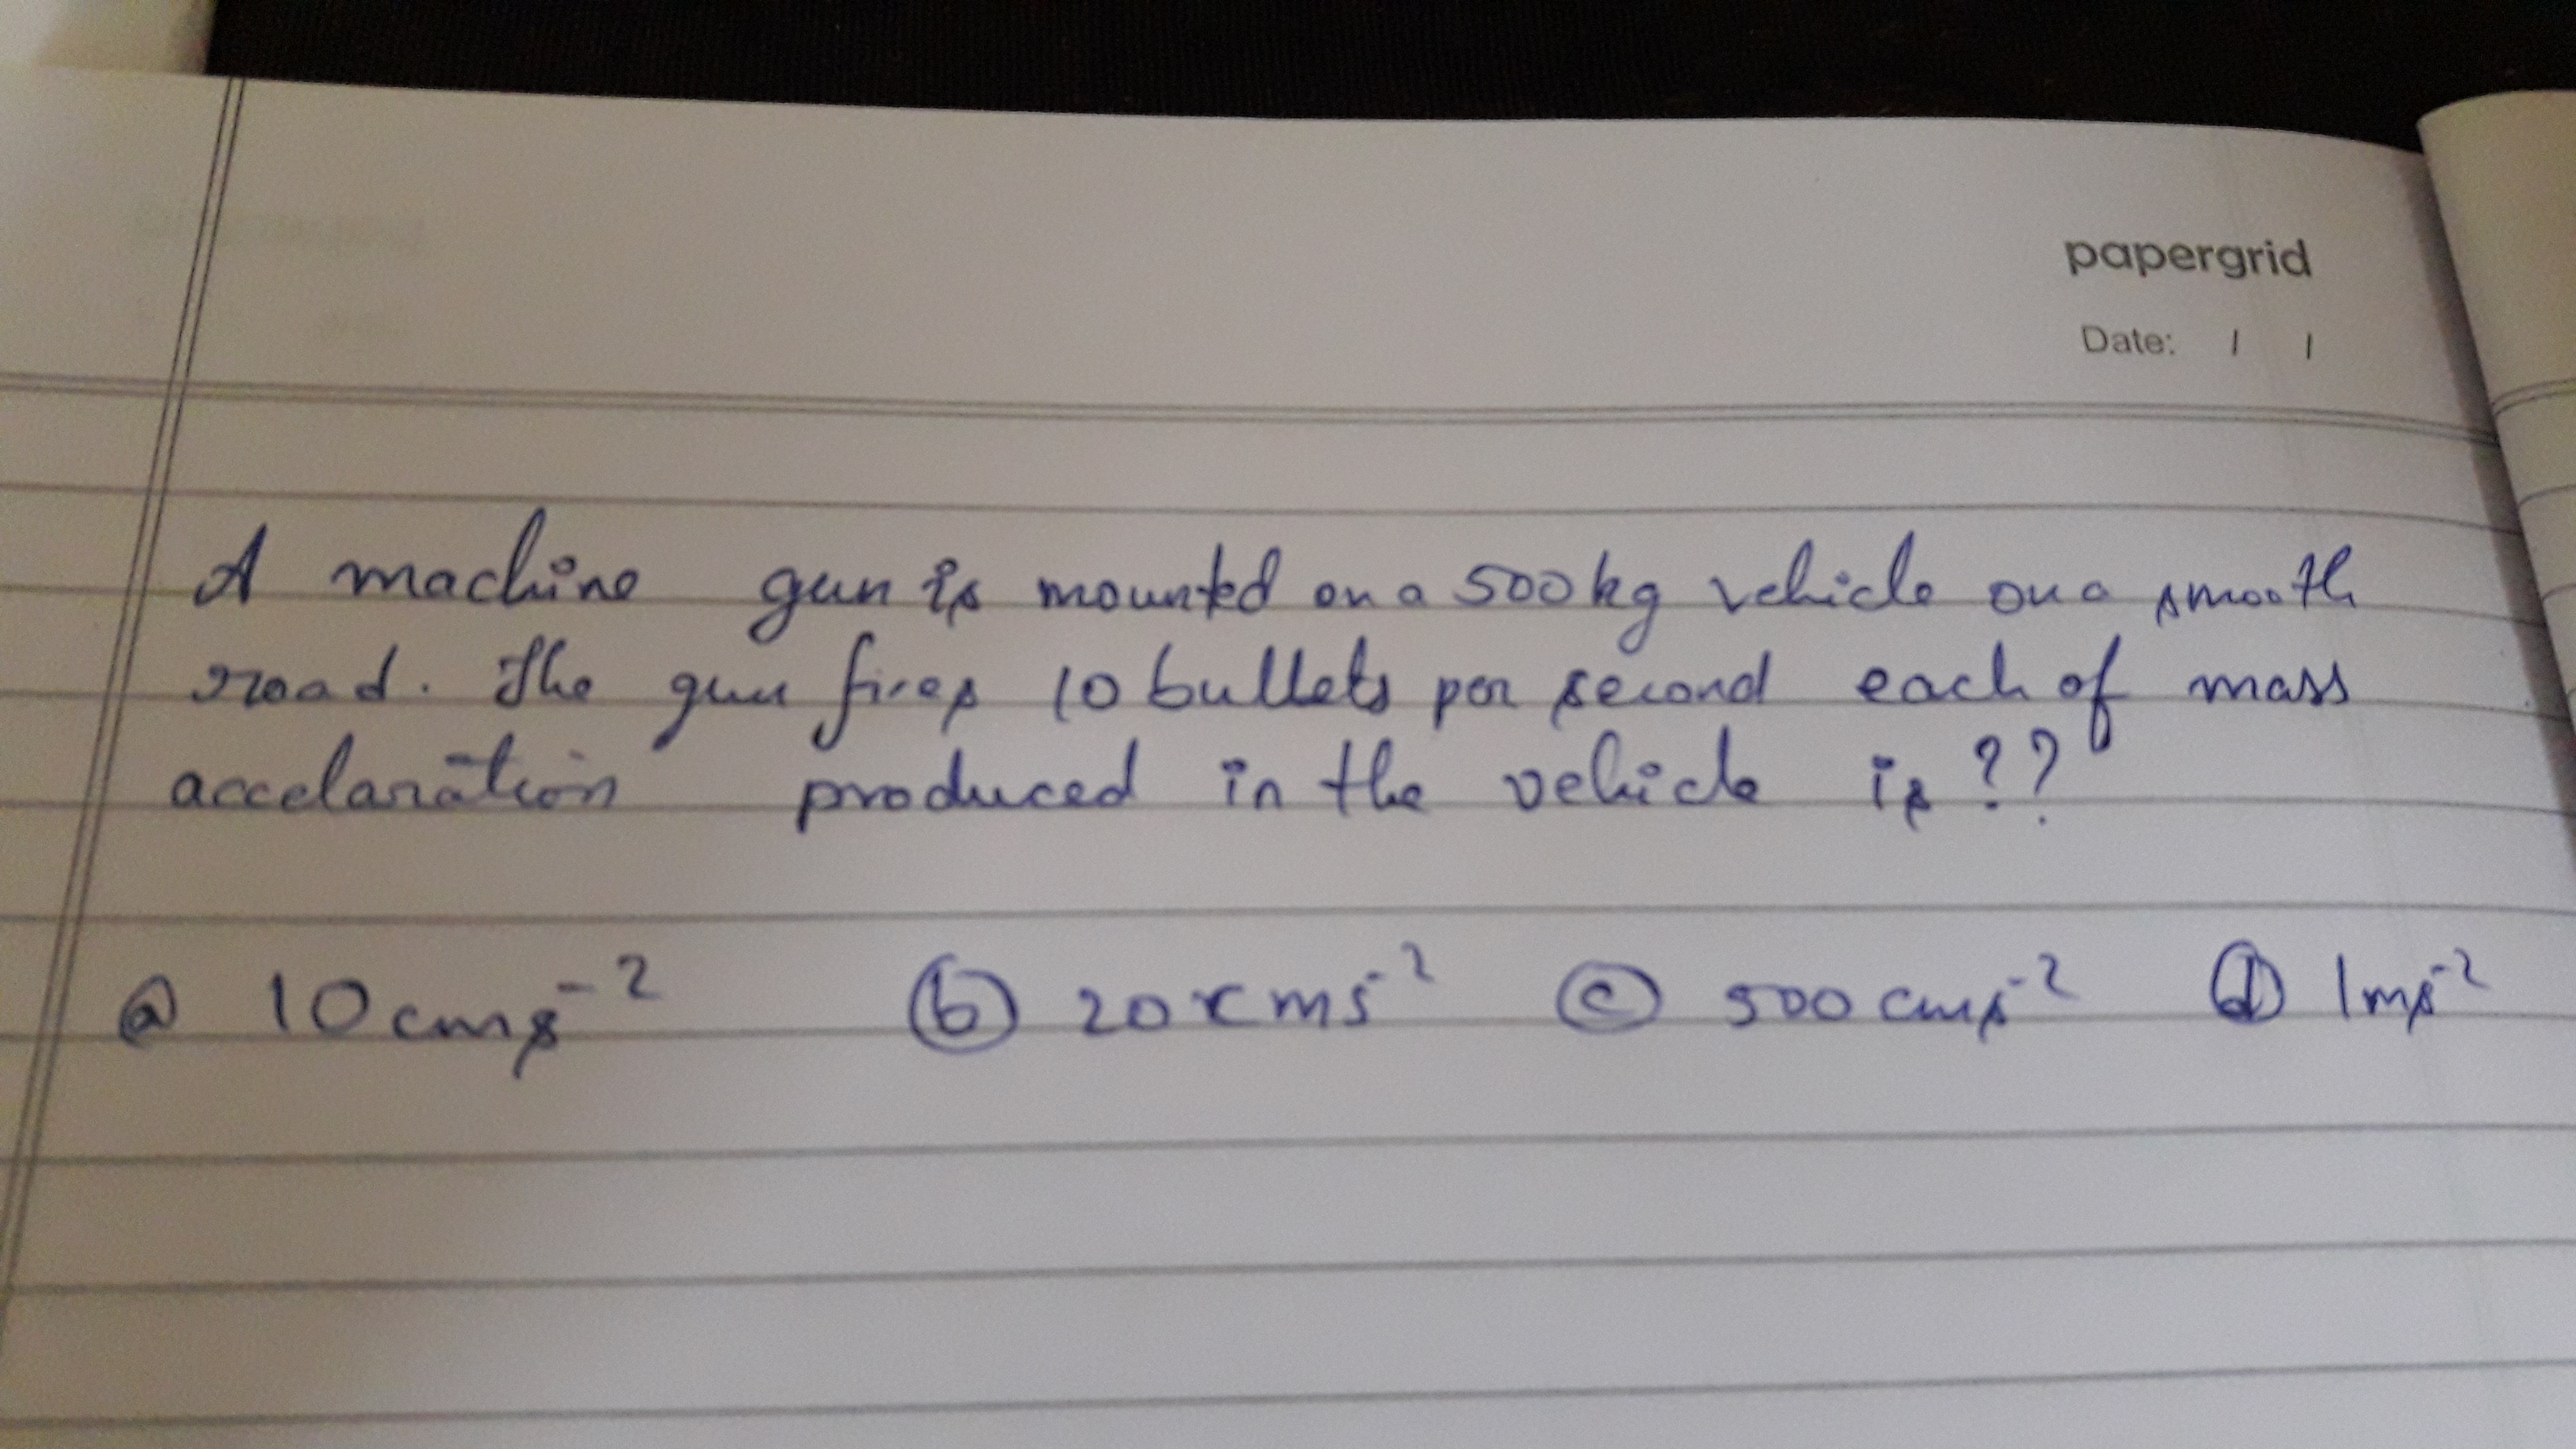 papergrid
Date: / /
A machine gun is mounted on a 500kg vehicle on a smooth
road. The gun fires 10 bullets per second each of mass
accelaration produced in the vehicle is ??
(a) 10 cms⁻² (b) 20 cms⁻² (c) 500 cms⁻² (d) 1ms⁻²